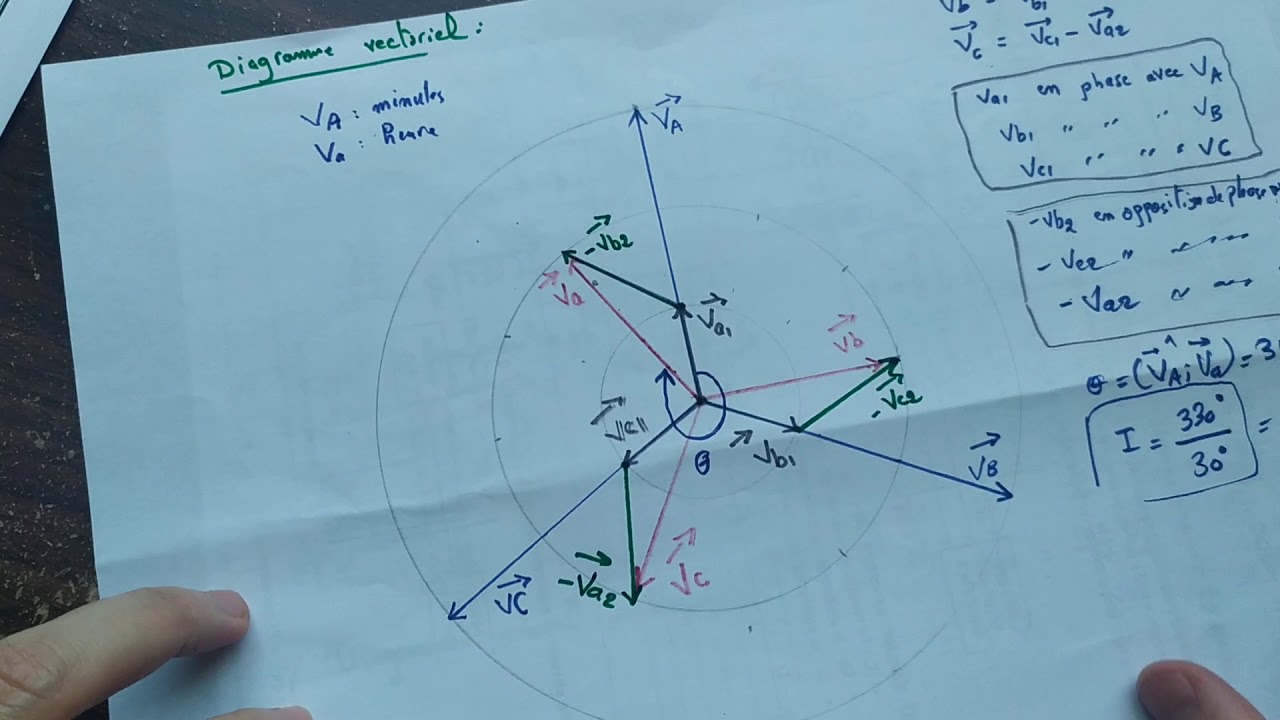 Diagramme vectoriel :
VA : minutes
Va : heure
Vb = Vb1
Vc = Vc1 - Va2
Va1 en phase avec VA
Vb1 " " " VB
Vc1 " " " VC
-Vb2 en opposition de phase
-Vc2 "
-Va2
θ = (VA; Va) = 3
I = 330° / 30° =
VA
-Vb2
Va
Va1
Vb
-Vc2
Vc1
θ
Vb1
VB
VC
-Va2
Vc